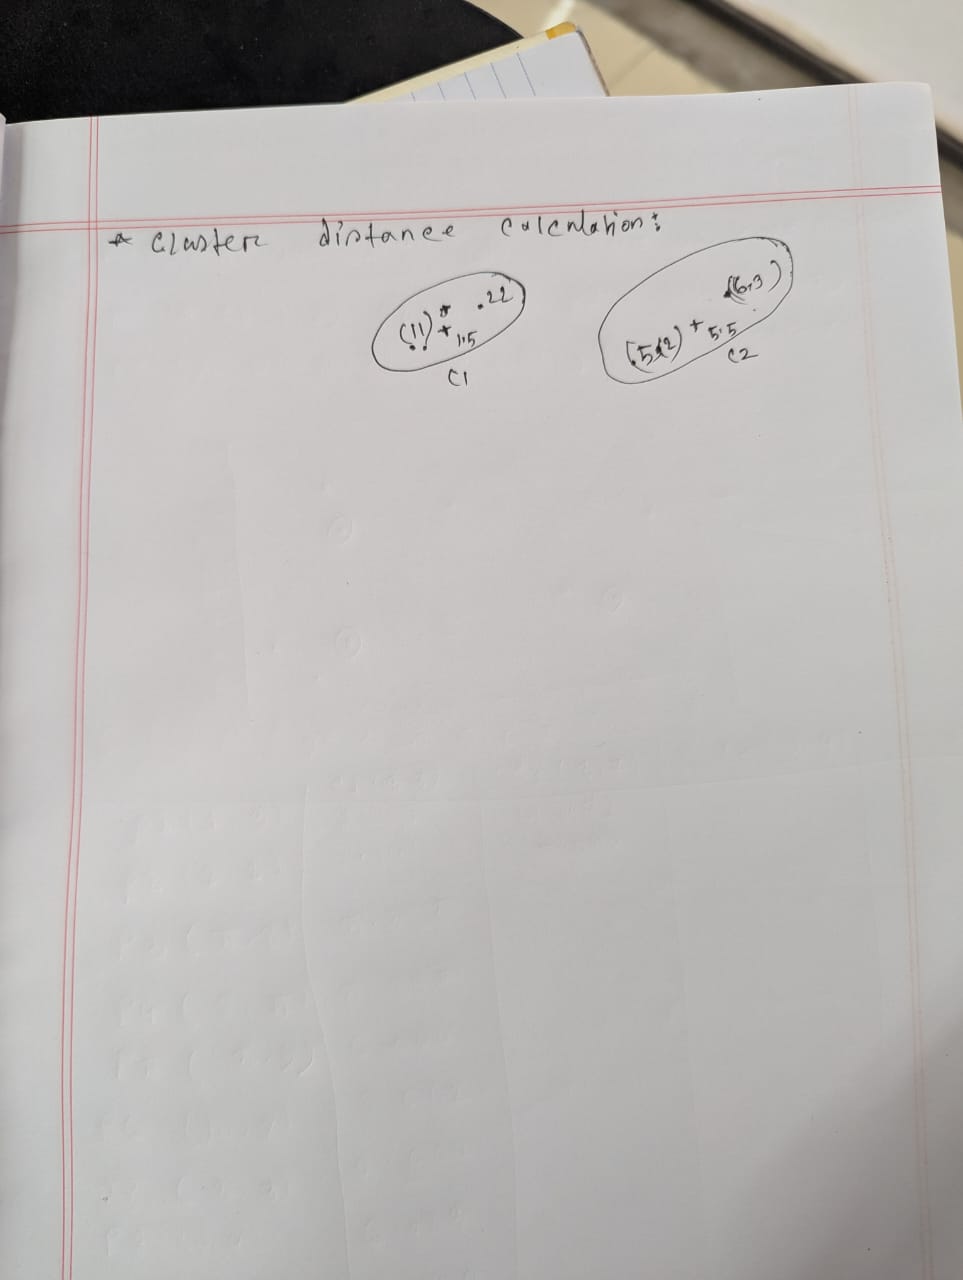 * Cluster distance calculation:
(11) + 1.5 .22
C1
(5,2) + 5.5 (6,3)
C2